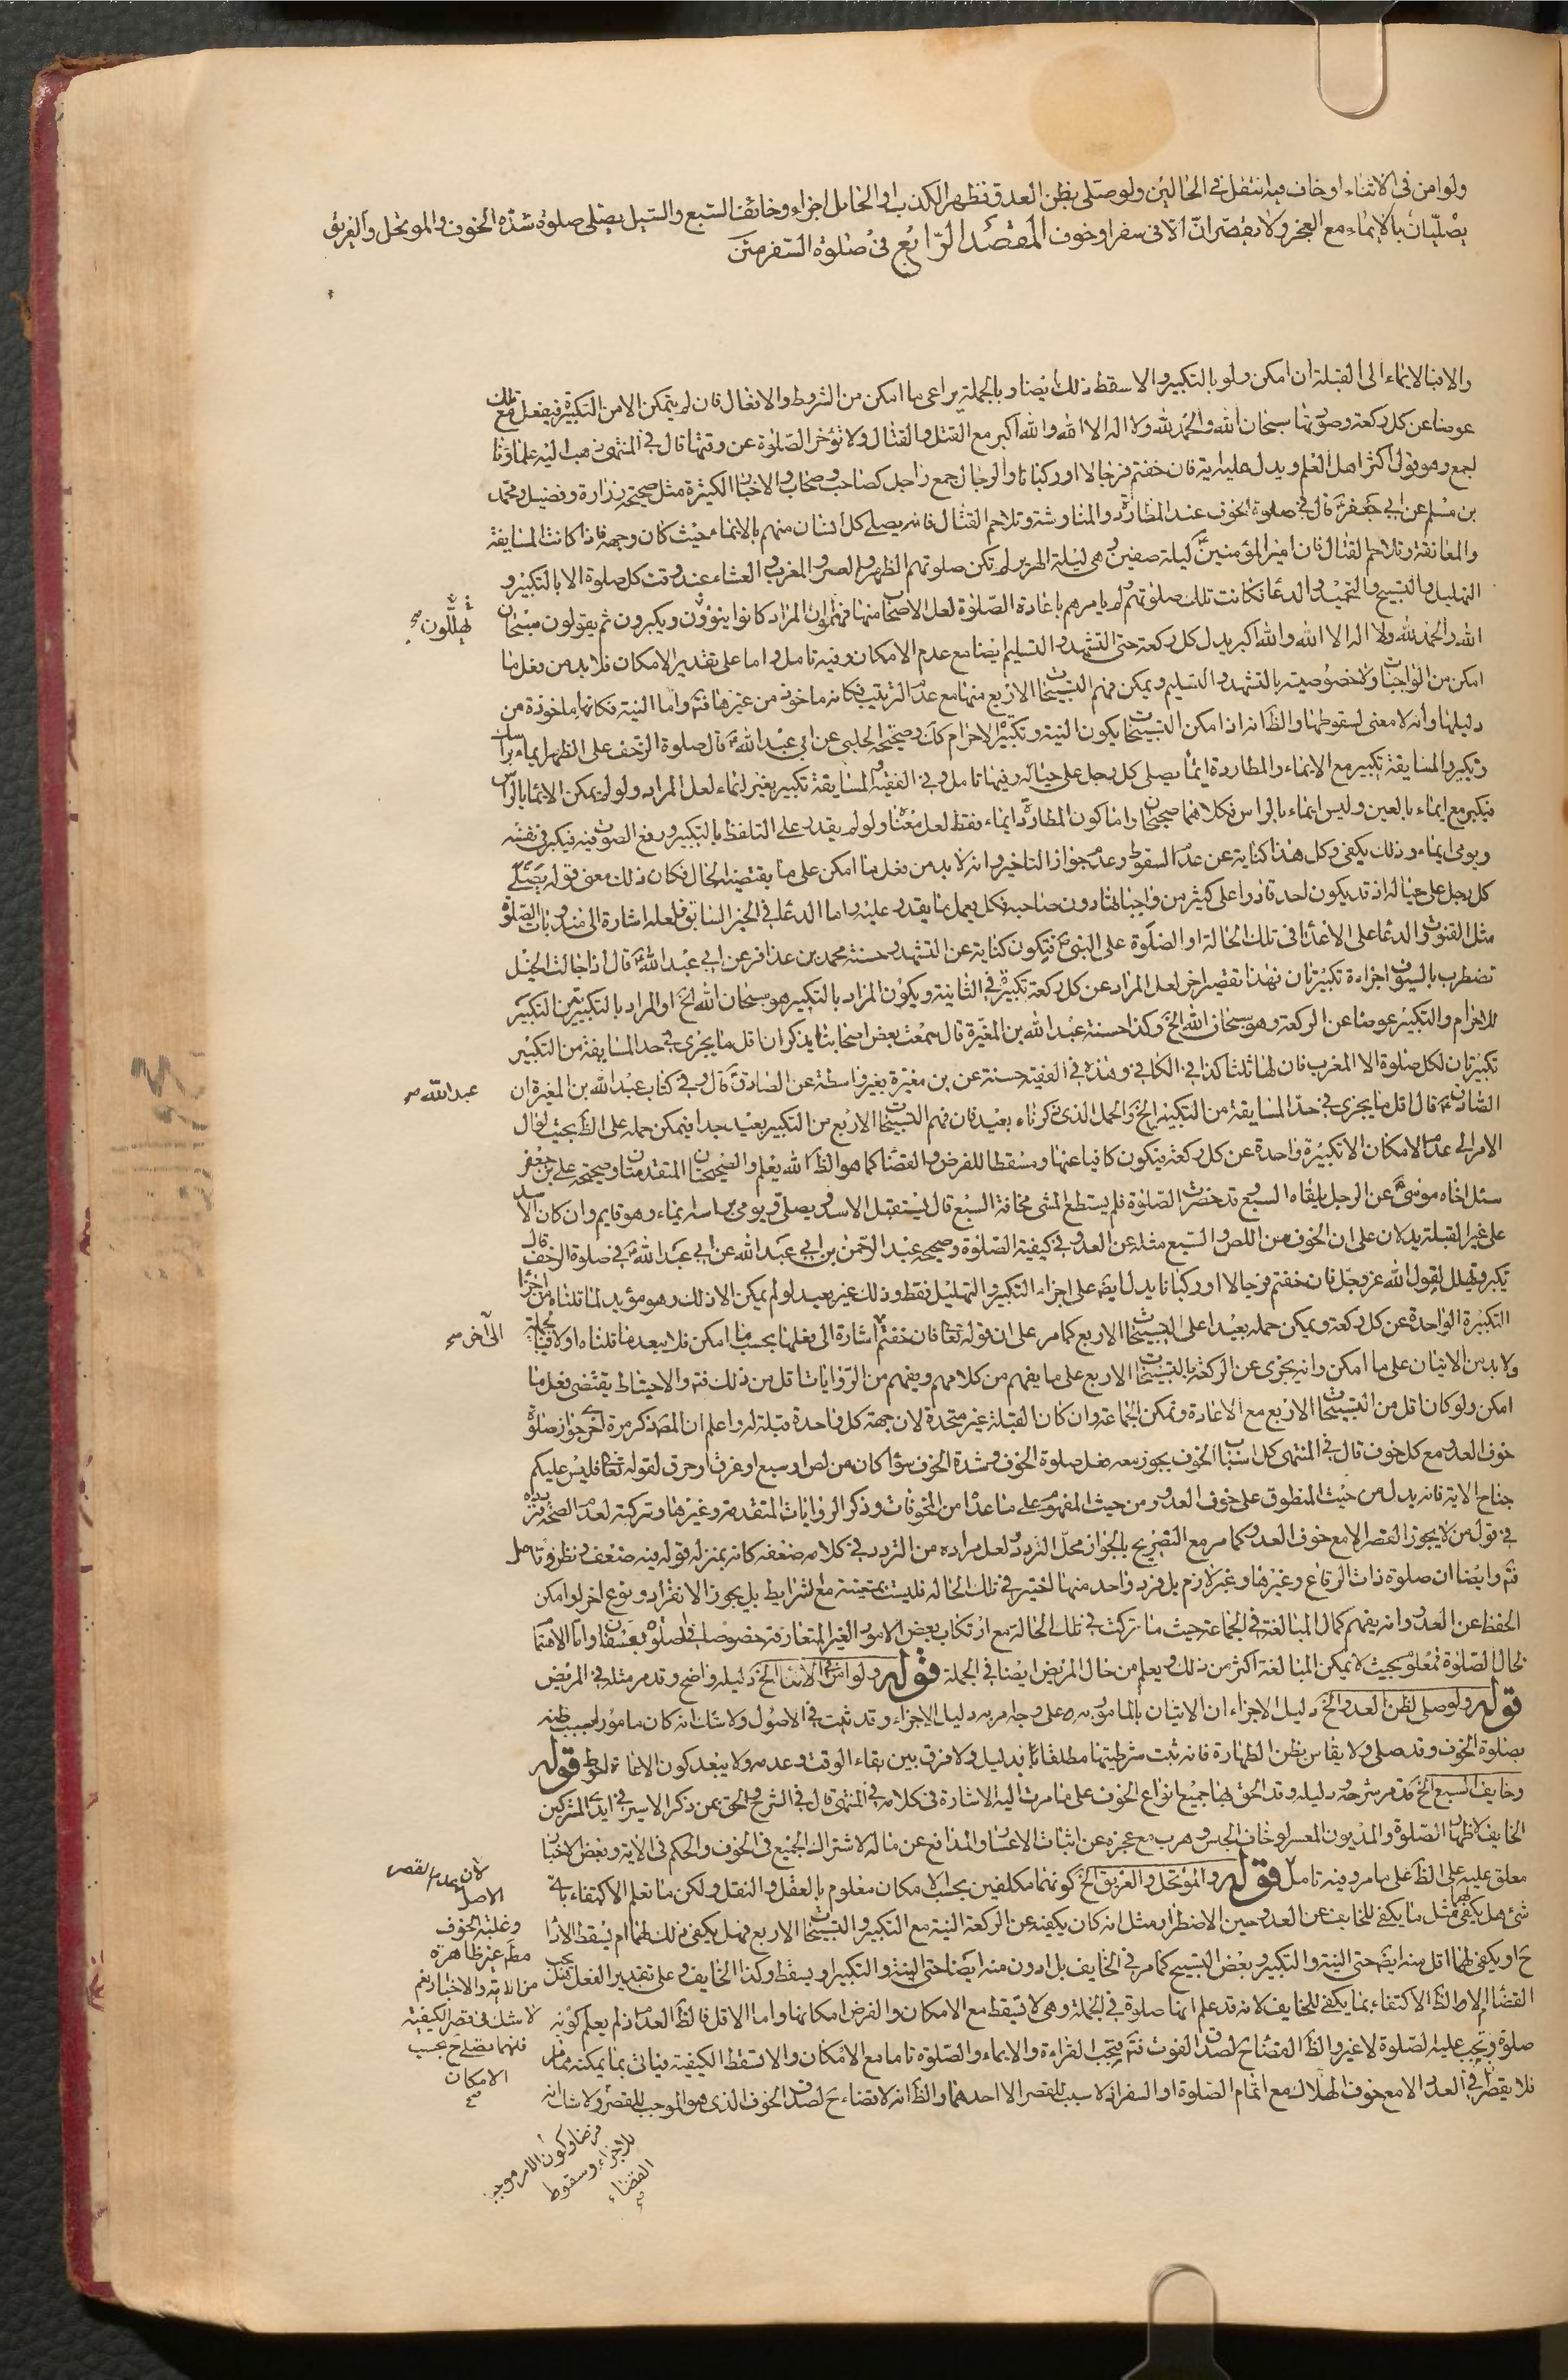 ولو امن فى الاثناء او خاف فيه انتقل فى الحالين ولو صلى بظن العدو فظهر الكذب او الحائل اجزاء وخائف السبع والسيل يصلى صلوة شدة الخوف والموتحل والغريق
يصليان بالايماء مع العجز ولا يقصران الا فى سفر او خوف المقصد الرابع فى صلوة السفر متن
والا فبالايماء الى القبلة ان امكن ولو بالتكبير والا سقط ذلك ايضا وبالجملة يراعى ما امكن من الشروط والافعال فان لم يتمكن الا من التكبيرة فيفعل مع تلك
عوضا عن كل ركعة وصورتها سبحان الله والحمد لله ولا اله الا الله والله اكبر مع القتل والقتال ولا تؤخر الصلوة عن وقتها قال فى المنتهى ذهب اليه علماؤنا
اجمع وهو قول اكثر اهل العلم ويدل عليه اية فان خفتم فرجالا او ركبانا والرجال جمع راجل كصاحب وصحاب والاخبار الكثيرة مثل صحيحة زرارة وفضيل ومحمد
بن مسلم عن ابى جعفر ع قال فى صلوة الخوف عند المطاردة والمناوشة وتلاحم القتال فانه يصلى كل انسان منهم بالايماء حيث كان وجهه فاذا كانت المسايفة
والمعانقة وتلاحم القتال فان امير المؤمنين ع ليلة صفين وهى ليلة الهرير لم تكن صلوتهم الظهر والعصر والمغرب والعشاء عند وقت كل صلوة الا بالتكبير و
التهليل والتسبيح والتحميد والدعا فكانت تلك صلوتهم لم يامرهم باعادة الصلوة لعل الاصحاب منها فهموا ان المراد كانوا ينوون ويكبرون ثم يقولون سبحان
يهللون صح
الله والحمد لله ولا اله الا الله والله اكبر بدل كل ركعة حتى التشهد والتسليم ايضا مع عدم الامكان وفيه تامل واما على تقدير الامكان فلا بد من فعل ما
امكن من الواجبات ولا خصوصية بالتشهد والتسليم ويمكن فهم التسبيحات الاربع منها مع عدم الترتيب فكانه ماخوذ من غيرها فتم واما النية فكانها ماخوذة من
دليلها وانه لا معنى لسقوطها والظ انه اذا امكن التسبيحات يكون النية وتكبيرة الاحرام كك وصحيحة الحلبى عن ابى عبد الله ع قال صلوة الزحف على الظهر ايماء براسك
وتكبير والمسايفة تكبير مع الايماء والمطاردة ايماء يصلى كل رجل على حياله وفيها تامل وفى الفقيه والمسايفة تكبير بغير ايماء لعل المراد ولو لم يمكن الايماء بالراس
فيكبر مع ايماء بالعين وليس ايماء بالراس فكلاهما صحيحان واما كون المطاردة ايماء فقط لعل معناه ولو لم يقدر على التلفظ بالتكبير ورفع الصوت فيه فيكبر فى نفسه
ويومى ايماء وذلك يكفى وكل هذا كناية عن عدم السقوط وعدم جواز التاخير وانه لا بد من فعل ما امكن على ما يقتضيه الحال فكان ذلك معنى قوله يصلى
كل رجل على حياله اذ قد يكون احد قادرا على كثير من واجباتها دون صاحبه فكل يعمل بما يقدر عليه واما الدعا فى الخبر السابق فلعله اشارة الى مندوبات الصلوة
مثل القنوت والدعا على الاعداء فى تلك الحالة او الصلوة على النبى ص فيكون كناية عن التشهد وحسنة محمد بن عذافر عن ابى عبد الله ع قال اذا جالت الخيل
تضطرب بالسيوف اجزاءه تكبيرتان فهذا تقصير اخر لعل المراد عن كل ركعة تكبيرة فى الثنائية ويكون المراد بالتكبير هو سبحان الله الخ او المراد بالتكبيرتين التكبير
للاحرام والتكبير عوضا عن الركعة وهو سبحان الله الخ وكذا حسنة عبد الله بن المغيرة قال سمعت بعض اصحابنا يذكر ان اقل ما يجزى فى حد المسايفة من التكبير
تكبيرتان لكل صلوة الا المغرب فان لها ثلثا كذا فى الكافى وهذه فى الفقيه حسنة عن بن مغيرة بغير واسطة عن الصادق ع قال وفى كتاب عبد الله بن المغيرة ان
عبد الله صح
الصادق ع قال اقل ما يجزى فى حد المسايفة من التكبير الخ والحمل الذى ذكرناه بعيد فان فهم التسبيحات الاربع من التكبير بعيد جدا فيمكن حمله على الظ بحيث لو ال
الامر الى عدم الامكان الا تكبيرة واحدة عن كل ركعة فيكون كافيا عنها ومسقطا للفرض والقضاء كما هو الظ الله يعلم والصحيحتان المتقدمتان وصحيحة على بن جعفر
سئل اخاه موسى ع عن الرجل يلقاه السبع وقد حضرت الصلوة فلم يستطع المشى مخافة السبع قال يستقبل الاسد ويصلى ويومى براسه ايماء وهو قايم وان كان الاسد
على غير القبلة يدلان على ان الخوف من اللص والسبع مثله عن العدو فى كيفية الصلوة وصحيحة عبد الرحمن بن ابى عبد الله عن ابى عبد الله ع فى صلوة الزحف قال
تكبر وتهلل لقول الله عز وجل فان خفتم فرجالا او ركبانا يدل ايضا على اجزاء التكبير والتهليل فقط وذلك غير بعيد لو لم يمكن الا ذلك وهو مؤيد لما قلناه من اجزاء
التكبيرة الواحدة عن كل ركعة ويمكن حمله بعيدا على التسبيحات الاربع كما مر على ان قوله تعا فان خفتم اشارة الى فعلها بحسب ما امكن فلا يبعد ما قلناه اولا وبالجملة
الى اخر صح
ولا بد من الاتيان على ما امكن وانه يجزى عن الركعة بالتسبيحات الاربع على ما يفهم من كلامهم ويفهم من الروايات اقل من ذلك فتم والاحتياط يقتضى فعل ما
امكن ولو كان اقل من التسبيحات الاربع مع الاعادة ويمكن الجماعة وان كان القبلة غير متحدة لان جهة كل واحدة قبلة له واعلم ان المصنف ذكر مرة اخرى جواز صلوة
خوف العدو مع كل خوف قال فى المنتهى كل اسباب الخوف يجوز معه فعل صلوة الخوف وشدة الخوف سواء كان من لص او سبع او غرق او حرق لقوله تعا فليس عليكم
جناح الاية فانه يدل من حيث المنطوق على خوف العدو ومن حيث المفهوم على ما عداه من المخوفات وذكر الروايات المتقدمة وغيرها وتركته لعدم الصحة
فى قول من لا يجوز القصر الا مع خوف العدو كما مر مع التصريح بالجواز محل التردد ولعل مراده من التردد فى كلامه ضعفه كانه بمنزلة قوله فيه ضعف ونظر وتامل
فتم وايضا ان صلوة ذات الرقاع وغيرها وغير لازم بل فرد واحد منها اختير فى تلك الحالة فليست بمتعينة مع الشرايط بل يجوز الانفراد ونوع اخر لو امكن
الحفظ عن العدو وانه يفهم كمال المبالغة فى الجماعة حيث ما تركت فى تلك الحالة مع ارتكاب بعض الامور الغير المتعارفة خصوصا فى صلوة بعسفان واما الاهتمام
بحال الصلوة فمعلوم بحيث لا يمكن المبالغة اكثر من ذلك ويعلم من حال المريض ايضا فى الجملة قوله ولو امن فى الاثناء الخ دليله واضح وقد مر مثله فى المريض
قوله ولو صلى لظن العدو الخ دليل الاجزاء ان الاتيان بالمامور به على وجهه مر به دليل الاجزاء وقد ثبت فى الاصول ولا شك انه كان مامورا بسبب ظنه
بصلوة الخوف وقد صلى ولا يقاس بظن الطهارة فانه ثبت شرطيتها مطلقا بدليل ولا فرق بين بقاء الوقت وعدمه ولا يبعد كون الاعادة احوط قوله
وخايف السبع الخ قد مر شرحه ودليله وقد الحق بها جميع انواع الخوف على ما مرت اليه الاشارة فى كلامه فى المنتهى قال فى الشرح والحق بمن ذكر الاسير فى ايدى المشركين
الخايف لاظهار الصلوة والمديون المعسر لو خاف الحبس وهرب مع عجزه عن اثبات الاعسار والمدافع عن ماله لاشتراك الجميع فى الخوف والحكم فى الاية وبعض الاخبار
معلق عليه على الظ على ما مر وفيه تامل قوله والموتحل والغريق الخ كونهما مكلفين بحسب الامكان معلوم بالعقل والنقل ولكن ما نعلم الاكتفاء باى
شئ هل يكفى لهما مثل ما يكفى للخايف عن العدو حين الاضطرار مثل انه كان يكفيه عن الركعة النية مع التكبير والتسبيحات الاربع فهل يكفى ذلك لهما ام يسقط الاداء
ح او يكفى لهما اقل منه ايض حتى النية والتكبير وبعض التسبيح كما مر فى الخايف بل ادون منه ايضا حتى النية والتكبير او يسقط وكذا الخايف وعلى تقدير الفعل هل يجب
القضاء ام لا والظ الاكتفاء بما يكفى للخايف لانه قد علم انها صلوة فى الجملة وهى لا تسقط مع الامكان والفرض امكانها واما الاقل فالظ العدم اذ لم يعلم كونه
صلوة وتجب عليه الصلوة لا غير والظ القضاء ح لصدق الفوت فتم ويجب القراءة والايماء والصلوة تاما مع الامكان والا تسقط الكيفية فياتى بما يمكنه تماما
فلا يقصر فى العدد الا مع خوف الهلاك مع اتمام الصلوة او السفر اذ لا سبب للقصر الا احدهما والظ انه لا قضاء ح لصدق الخوف الذى هو الموجب للقصر ولا شك انه
لان عدم القصر
الاصل
وغلبة الخوف
مطم غير ظاهرة
من الاية والاخبار نعم
لا شك فى قصر الكيفية
فانهما يصلى ح بحسب
الامكان
صح
فرضا وكون الامر موجبا
للاجزاء وسقوط
القضاء
صح